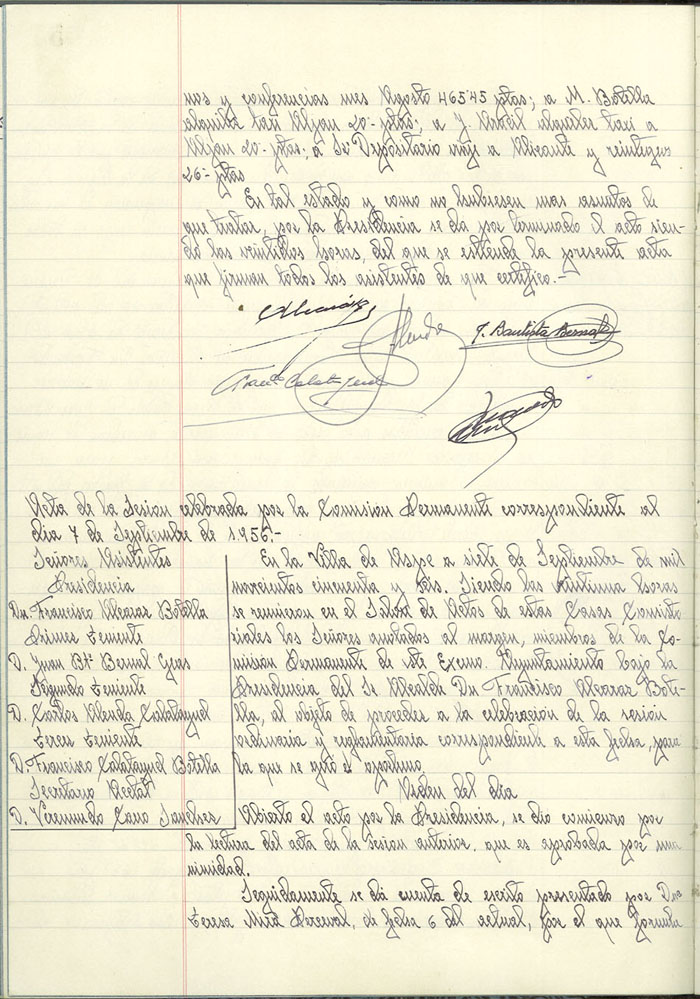 nos y conferencias mes Agosto 465'45 ptas; a M. Botella
alquiler taxi Aljau 20'- ptas; a J. Abril alquiler taxi a
Aljau 20'- ptas; a Sr. Depositario viaje a Alicante y reintegros
26'- ptas
En tal estado y como no hubiesen mas asuntos de
que tratar, por la Presidencia se da por terminado el acto sien-
do las veintidos horas, del que se estiende la presente acta
que firman todos los asistentes de que certifico.-
J. Bautista Bernal
Franco Calatayud
Acta de la Sesion celebrada por la Comisión Permanente correspondiente al
dia 7 de Septiembre de 1.956.-
Señores Asistentes
Presidencia
Dn. Francisco Alcaraz Botella
Primer Teniente
D. Juan Bta Bernal Gras
Segundo Teniente
D. Carlos Alenda Calatayud
Tercer Teniente
D. Francisco Calatayud Botella
Secretario Acctal
D. Veremundo Cano Sanchez
En la Villa de Aspe a siete de Septiembre de mil
novecientos cincuenta y seis. Siendo las veintiuna horas
se reunieron en el Salon de Actos de estas Casas Consisto
riales los Señores anotados al margen, miembros de la Co-
misión Permanente de este Excmo. Ayuntamiento bajo la
Presidencia del Sr Alcalde Dn Francisco Alcaraz Bote-
lla, al objeto de proceder a la celebración de la sesion
ordinaria y reglamentaria correspondiente a esta fecha, para
la que se citó d oportuno.
Orden del dia
Abierto el acto por la Presidencia, se dio comienzo por
la lectura del acta de la Sesion anterior, que es aprobada por una
nimidad.
Seguidamente se dá cuenta de escrito presentado por Dna
Teresa Mira Perceval, de fecha 6 del actual, por el que formula